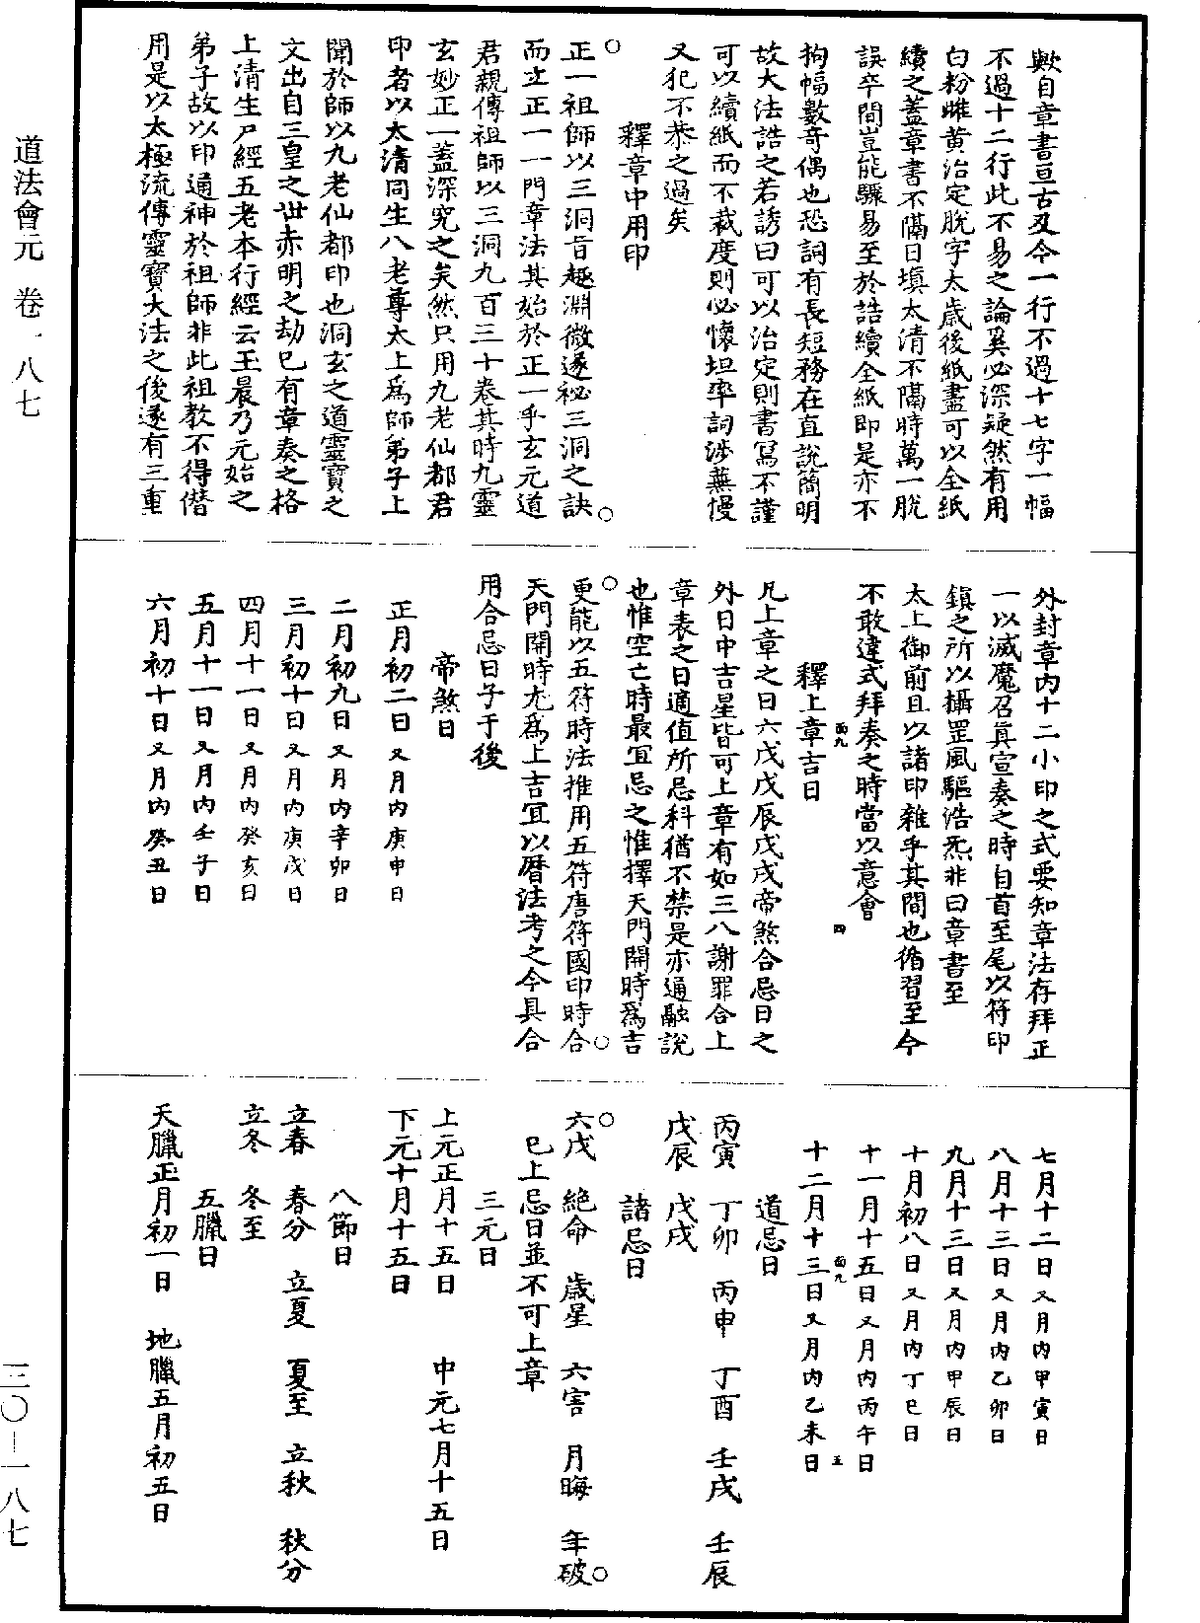 歟自章書亘古及今一行不過十七字一幅
不過十二行此不易之論奚必深疑然有用
白粉雌黃治定脫字太歲後紙盡可以全紙
續之蓋章書不隔日填太清不隔時萬一脫
誤卒間豈能驟易至於誥續全紙即是亦不
拘幅數奇偶也恐詞有長短務在直說簡明
故大法誥之若誘曰可以治定則書寫不謹
可以續紙而不裁度則必懷坦率詞涉蕪慢
又犯不恭之過矣
釋章中用印
○正一祖師以三洞旨趣淵微遂祕三洞之訣○
而立正一一門章法其始於正一乎玄元道
君親傳祖師以三洞九百三十卷其時九靈
玄妙正一蓋深究之矣然只用九老仙都君
印者以太清同生八老尊太上爲師弟子上
聞於師以九老仙都印也洞玄之道靈寶之
文出自三皇之世赤明之劫巳有章奏之格
上清生尸經五老本行經云玉晨乃元始之
弟子故以印通神於祖師非此祖教不得僭
用是以太極流傳靈寶大法之後遂有三重
外封章內十二小印之式要知章法存拜正
一以滅魔召真宣奏之時自首至尾以符印
鎮之所以攝罡風驅浩炁非曰章書至
太上御前且以諸印雜乎其間也循習至今
不敢違式拜奏之時當以意會
面九 四
釋上章吉日
凡上章之日六戊戊辰戊戌帝煞合忌日之
外日中吉星皆可上章有如三八謝罪合上
章表之日適值所忌科猶不禁是亦通融說
也惟空亡時最宜忌之惟擇天門開時爲吉
○更能以五符時法推用五符唐符國印時合○
天門開時尤爲上吉宜以曆法考之今具合
用合忌日子于後
帝煞日
正月初二日又月內庚申日
二月初九日又月內辛卯日
三月初十日又月內庚戌日
四月十一日又月內癸亥日
五月十一日又月內壬子日
六月初十日又月內癸丑日
七月十二日又月內甲寅日
八月十三日又月內乙卯日
九月十三日又月內甲辰日
十月初八日又月內丁巳日
十一月十五日又月內丙午日
面九 五
十二月十三日又月內乙未日
道忌日
丙寅 丁卯 丙申 丁酉 壬戌 壬辰
戊辰 戊戌
諸忌日
○六戊 絕命 歲星 六害 月晦 年破○
巳上忌日並不可上章
三元日
上元正月十五日 中元七月十五日
下元十月十五日
八節日
立春 春分 立夏 夏至 立秋 秋分
立冬 冬至
五臘日
天臘正月初一日 地臘五月初五日
道法會元 卷一八七
三〇—一八七